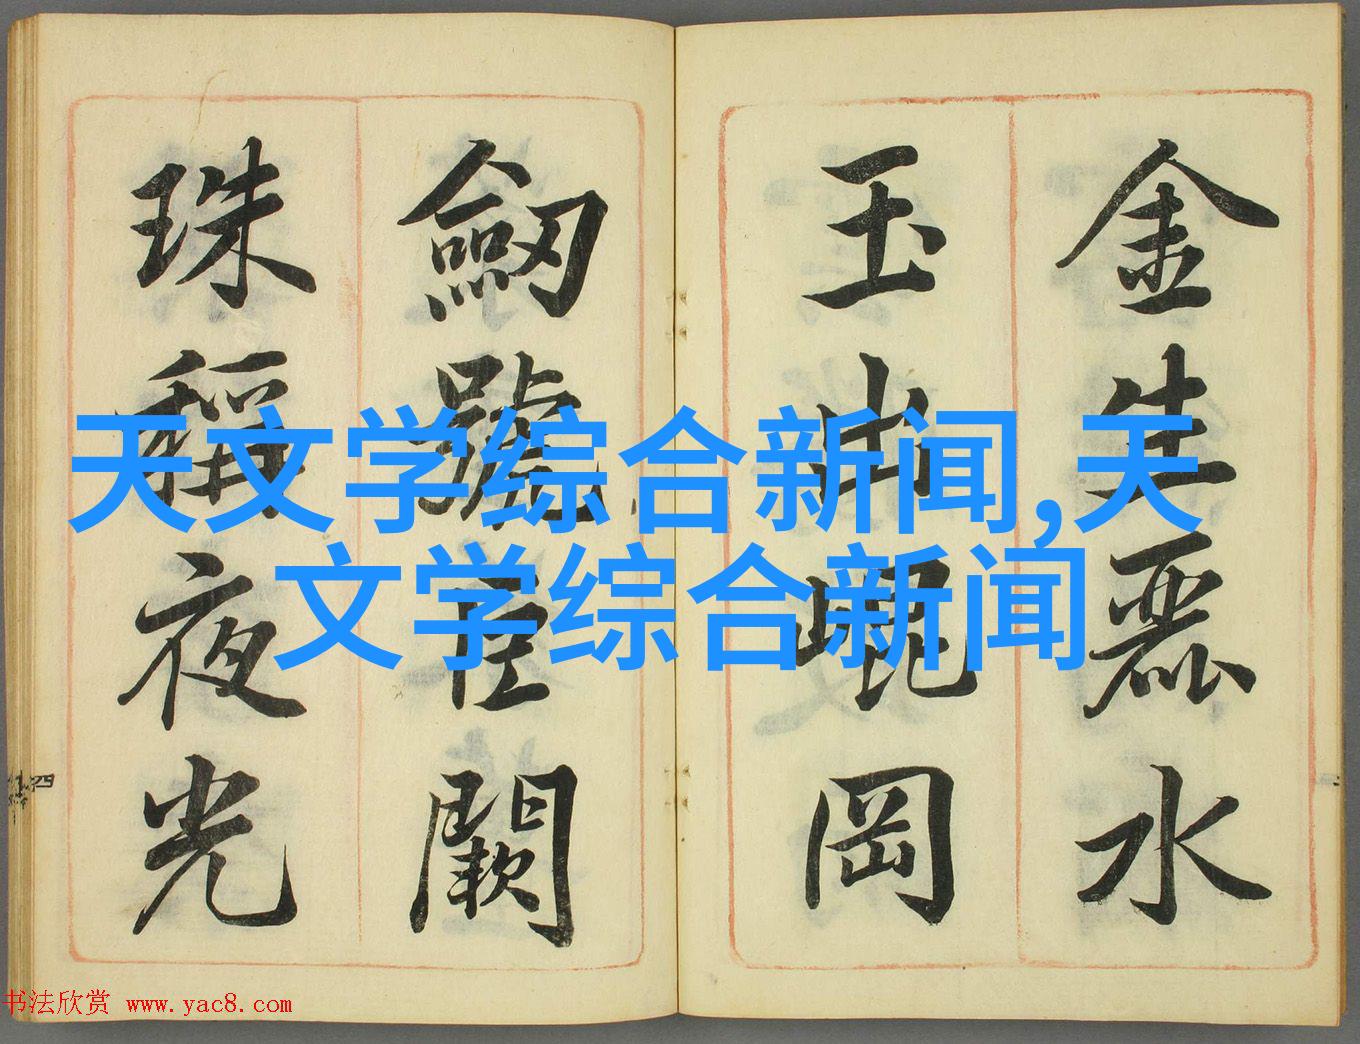 金生麗水
玉出崐岡
劔號巨闕
珠稱夜光
天文学综合新闻,天
文学综合新闻
书法欣赏 www.yac8.com